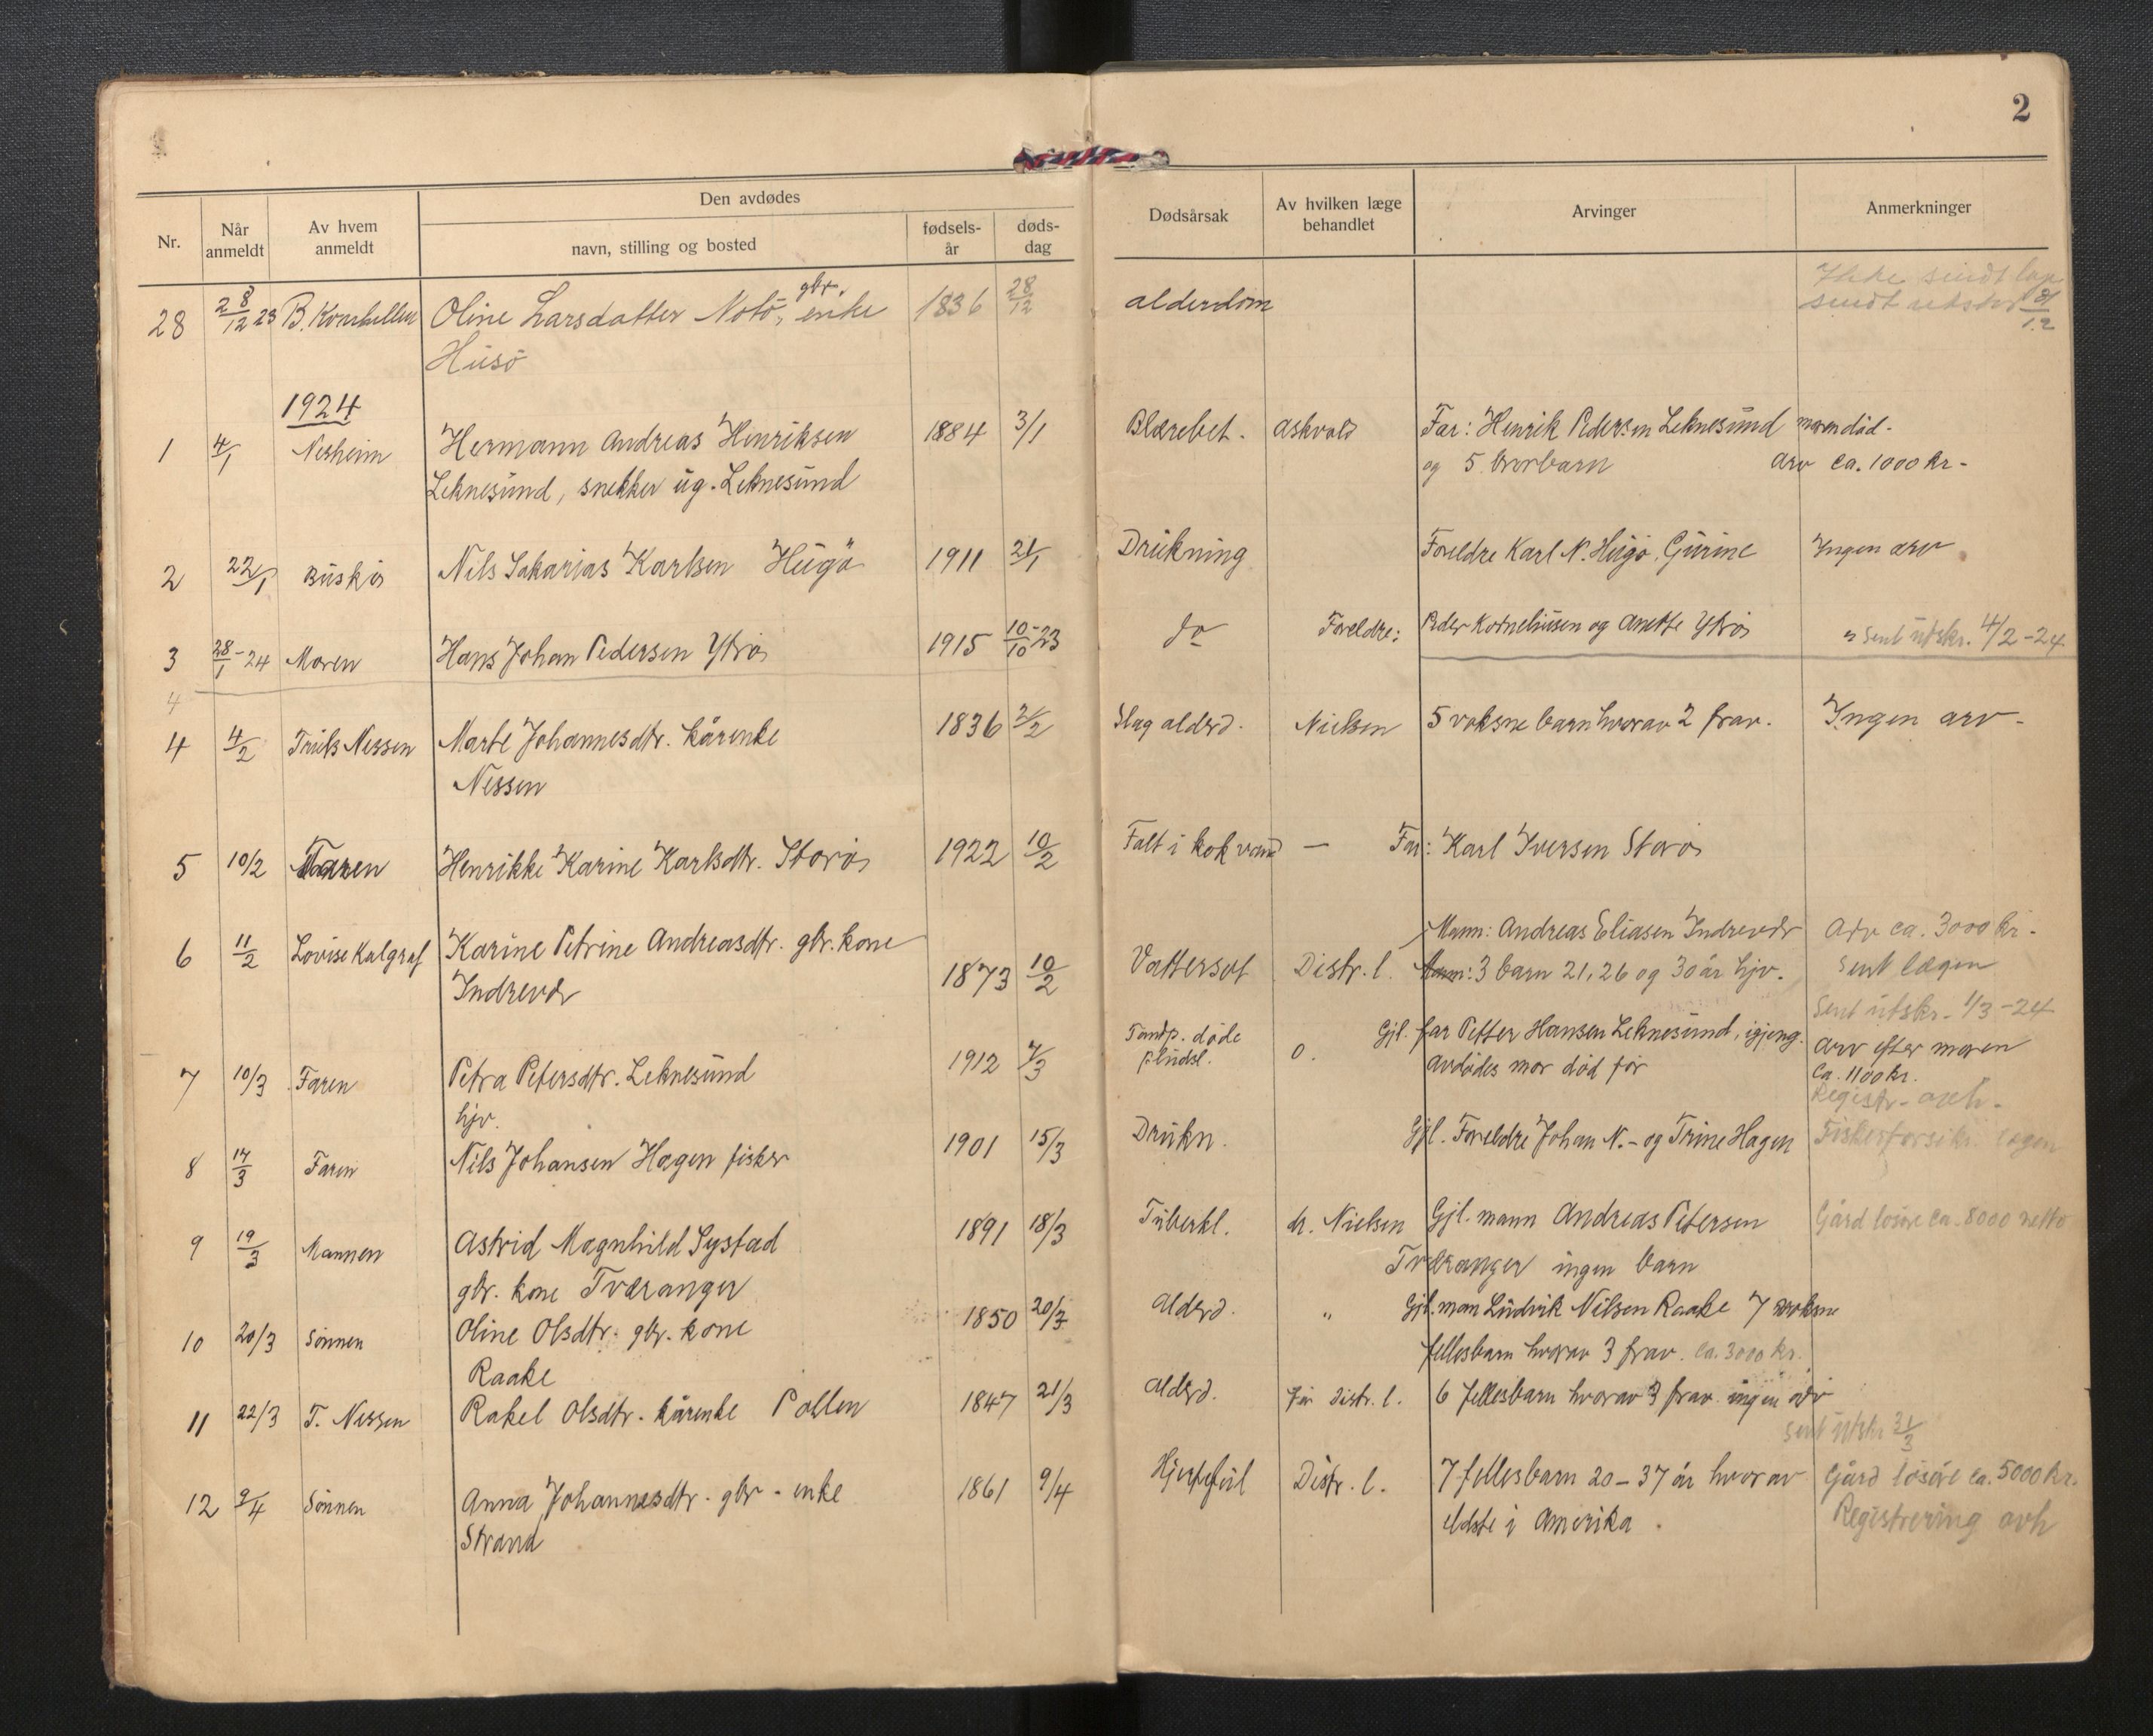 2
Nr.
Når anmeldt
Av hvem anmeldt
Den avdødes
navn, stilling og bosted
fødsels-år
døds-dag
Dødsårsak
Av hvilken læge behandlet
Arvinger
Anmerkninger
28 28/12 23 B. Oline Larsdatter Notö, gbr. enke 1836 28/12 alderdom
Husö
1924
1 4/1 Nesheim Hermann Andreas Henriksen 1884 3/1 Blærebet. Askvold Far: Henrik Pedersen Leknesund moren död-
Leknesund, snekker ug. Leknesund og 5 brorbarn arv ca. 1000 kr-
2 22/1 Buskö Nils Sakarias Karlsen Hugö 1911 21/1 Drukning Foreldre Karl N. Hugö, Gurine Ingen arv
3 28/1-24 Moren Hans Johan Pedersen Ytrö 1915 10/10-23 do Foreldre: Peder Korneliussen og Anette Ytrö " Sent utskr. 4/2-24
4
4 4/2 Truls Nessen Marte Johannesdtr. kårenke 1836 2/2 Slag alderd. Nielsen 5 voksne barn hvorav 2 frav. Ingen arv-
Nessen
5 10/2 Faren Henrikke Karine Karlsdtr. Storö 1922 10/2 Falt i kokvand — Far: Karl Iversen Storö
6 11/2 Lovise Kalgraf Karine Petrine Andreasdtr. gbr. kone Mann: Andreas Eliasen Indrevær Arv ca. 3000 kr-
Indrevær 1873 10/2 Vattersot Distr. l. 3 barn 21, 26 og 30 år hjv. Sent lægen
Sent utskr. 1/3-24
7 10/3 Faren Petra Petersdtr. Leknesund 1912 7/3 Tandp. döde pludsl. o. Gjl. far Petter Hansen Leknesund, igjeng. Arv efter moren
hjv. avdödes mor död för ca. 1100 kr.
Registr. avh-
8 17/3 Faren Nils Johansen Hagen fisker 1901 15/3 Drukn. Gjl. Foreldre Johan N.- og Trine Hagen Fiskerforsikr. lægen
9 19/3 Mannen Astrid Magnhild Systad 1891 18/3 Tuberkl. dr. Nielsen Gjl. mann Andreas Petersen Gård losöre ca. 8000 netto
gbr. kone Tværanger Tværanger ingen barn
10 20/3 Sönnen Oline Olsdtr. gbr. kone 1850 20/3 Alderd. " Gjl. man Ludvik Nilsen Raake 7 voksne
Raake fellesbarn hvorav 3 frav. ca. 3000 kr.
11 22/3 T. Nessen Rakel Olsdtr. kårenke Pollen 1847 21/3 Alderd. för distr. l. 6 fellesbarn hvorav 3 frav. ingen arv
Sent utskr 31/3
12 9/4 Sönnen Anna Johannesdtr. gbr - enke 1861 9/4 Hjertefeil Distr. l. 7 fellesbarn 20-37 år hvorav Gård lösöre ca. 5000 kr.
Strand eldste i Amerika. Registrering avh